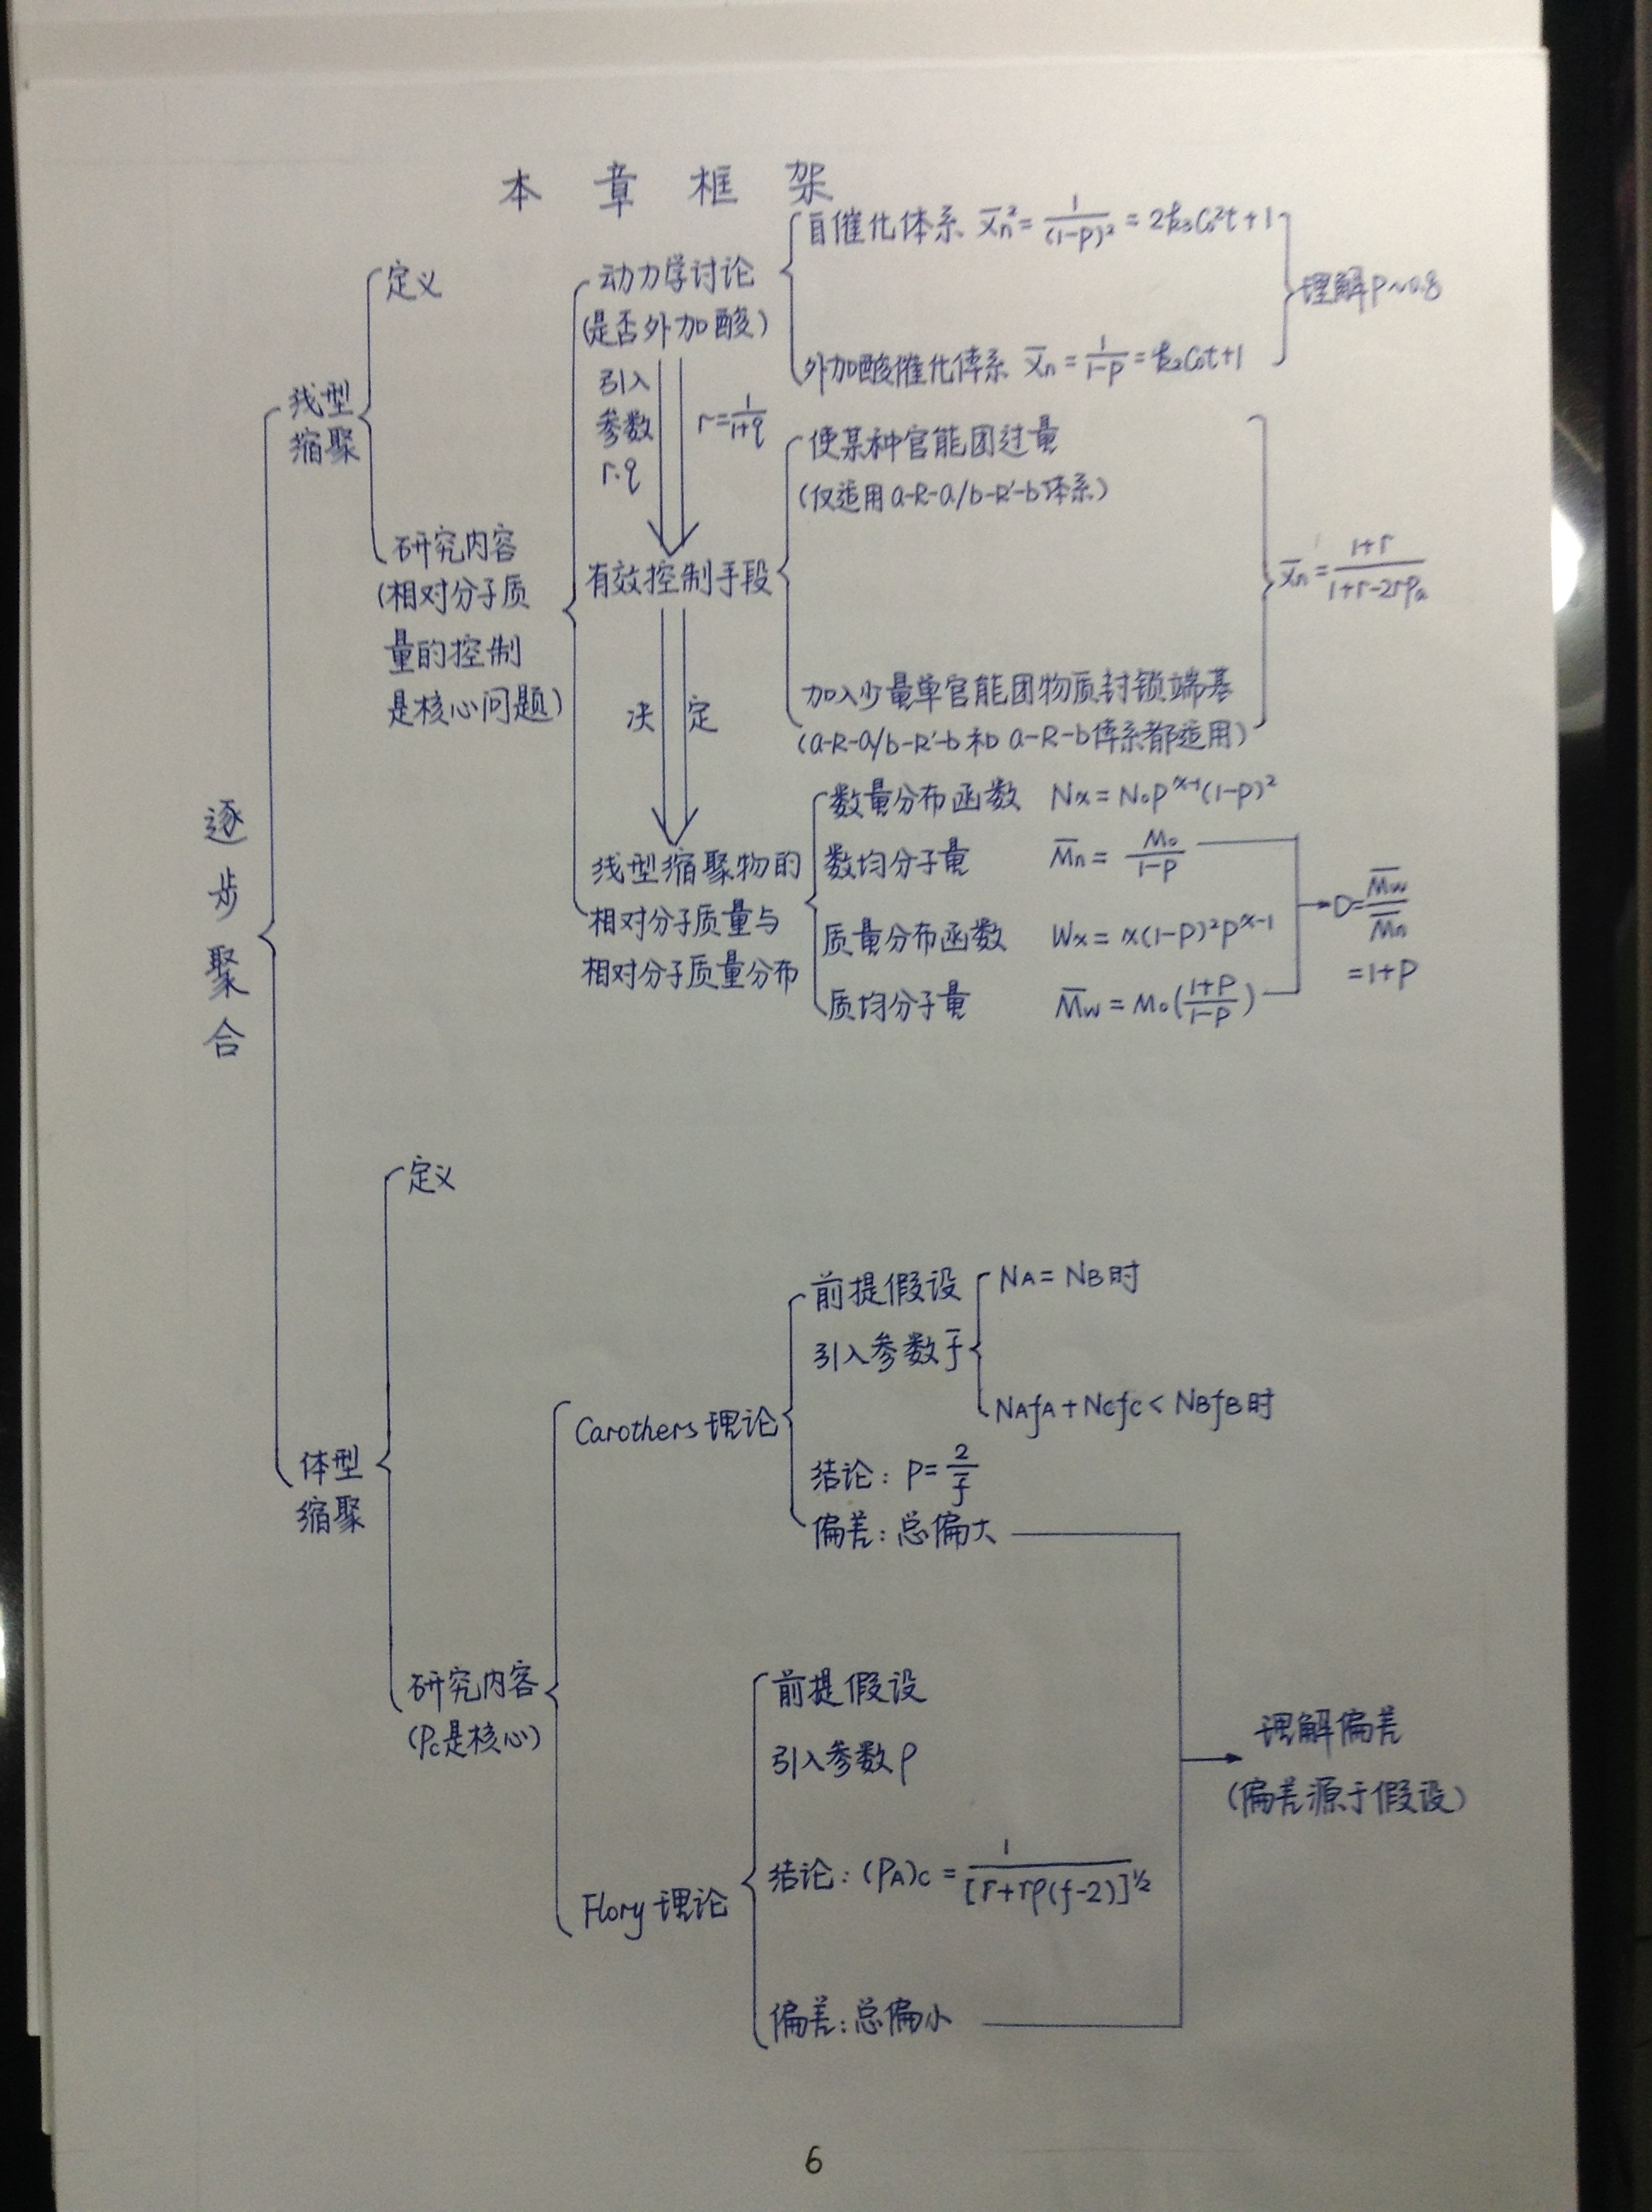 本章框架
逐步聚合
线型
缩聚
定义
研究内容
(相对分子质
量的控制
是核心问题)
动力学讨论
(是否外加酸)
引入
参数
r.q
r=1/(1+q)
自催化体系 X̄n²=1/(1-P)²=2k₃C₀²t+1
外加酸催化体系 X̄n=1/(1-P)=k₂C₀t+1
理解P~0.8
有效控制手段
使某种官能团过量
(仅适用a-R-a/b-R'-b体系)
加入少量单官能团物质封锁端基
(a-R-a/b-R'-b和a-R-b体系都适用)
X̄n=(1+r)/(1+r-2rPa)
决定
线型缩聚物的
相对分子质量与
相对分子质量分布
数量分布函数 Nx=N₀P^(x-1)(1-P)²
数均分子量 M̄n=M₀/(1-P)
质量分布函数 Wx=x(1-P)²P^(x-1)
质均分子量 M̄w=M₀((1+P)/(1-P))
D=M̄w/M̄n
=1+P
体型
缩聚
定义
研究内容
(Pc是核心)
Carothers理论
前提假设
引入参数f̄
NA=NB时
NAfA+NCfC<NBfB时
结论:P=2/f̄
偏差:总偏大
Flory理论
前提假设
引入参数ρ
结论:(PA)c=1/[r+rρ(f-2)]^½
偏差:总偏小
理解偏差
(偏差源于假设)
6